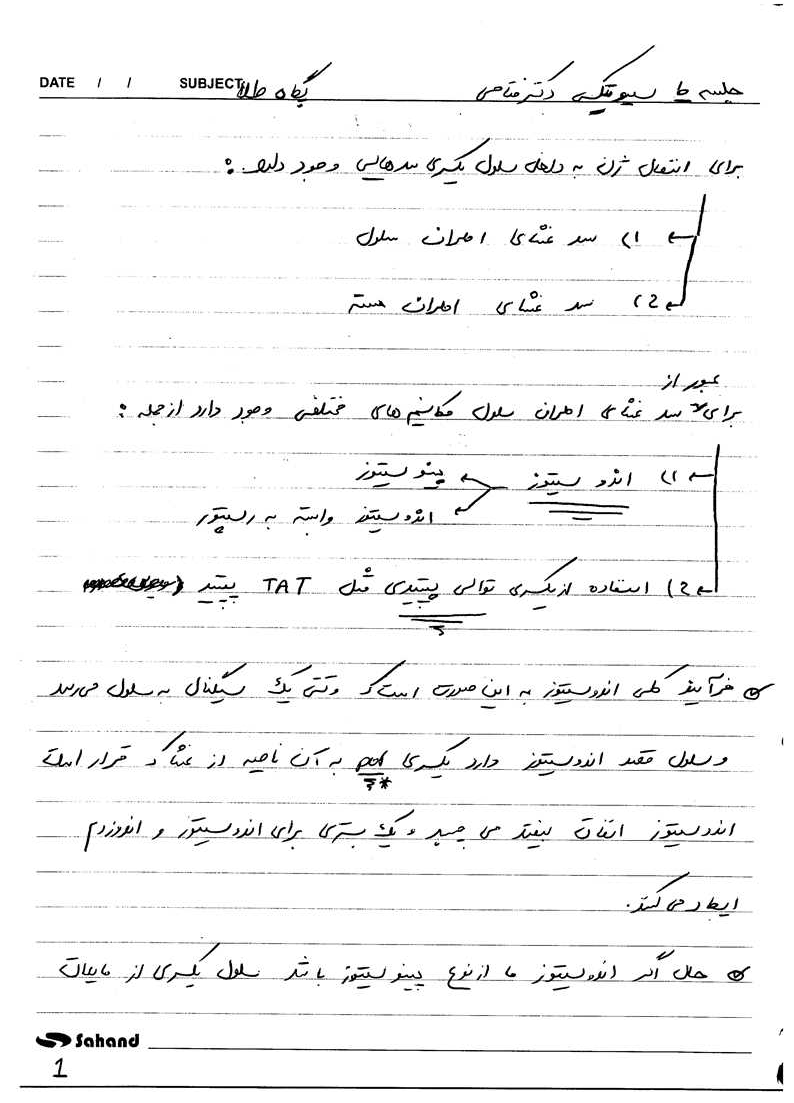 DATE / / SUBJECT پگاه طلا جلسه ۵ سیوتیکس دکتر فتاحی
برای انتقال ژن به داخل سلول یکسری سدهایی وجود دارد:
1) سد غشای اطراف سلول
2) سد غشای اطراف هسته
عبور از
برای سد غشای اطراف سلول مکانیسم های مختلفی وجود دارد از جمله:
1) اندوسیتوز پینوسیتوز
اندوسیتوز وابسته به رسپتور
2) استفاده از یکسری توالی پپتیدی مثل TAT پپتید
فرآیند کلی اندوسیتوز به این صورت است که وقتی یک سیگنال به سلول می‌رسد
و سلول قصد اندوسیتوز دارد یکسری pol به آن ناحیه از غشا که قرار است
؟*
اندوسیتوز اتفاق بیفتد می چسبد و یک بستری برای اندوسیتوز و اندوزوم
ایجاد می کند.
حال اگر اندوسیتوز ما از نوع پینوسیتوز باشد سلول یکسری از مایعات
Sahand
1